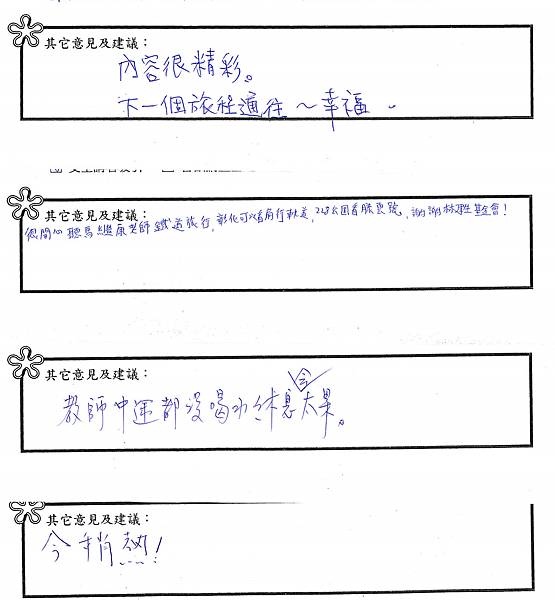 其它意見及建議：
內容很精彩。
下一個旅程通往～幸福。
其它意見及建議：
很開心聽馬繼康老師鐵道旅行，彰化可以看扇行軌道，228公園看騰雲號，謝謝林業基金會！
其它意見及建議：
教師中途都沒喝水休息
會太累。
其它意見及建議：
今稍熱！